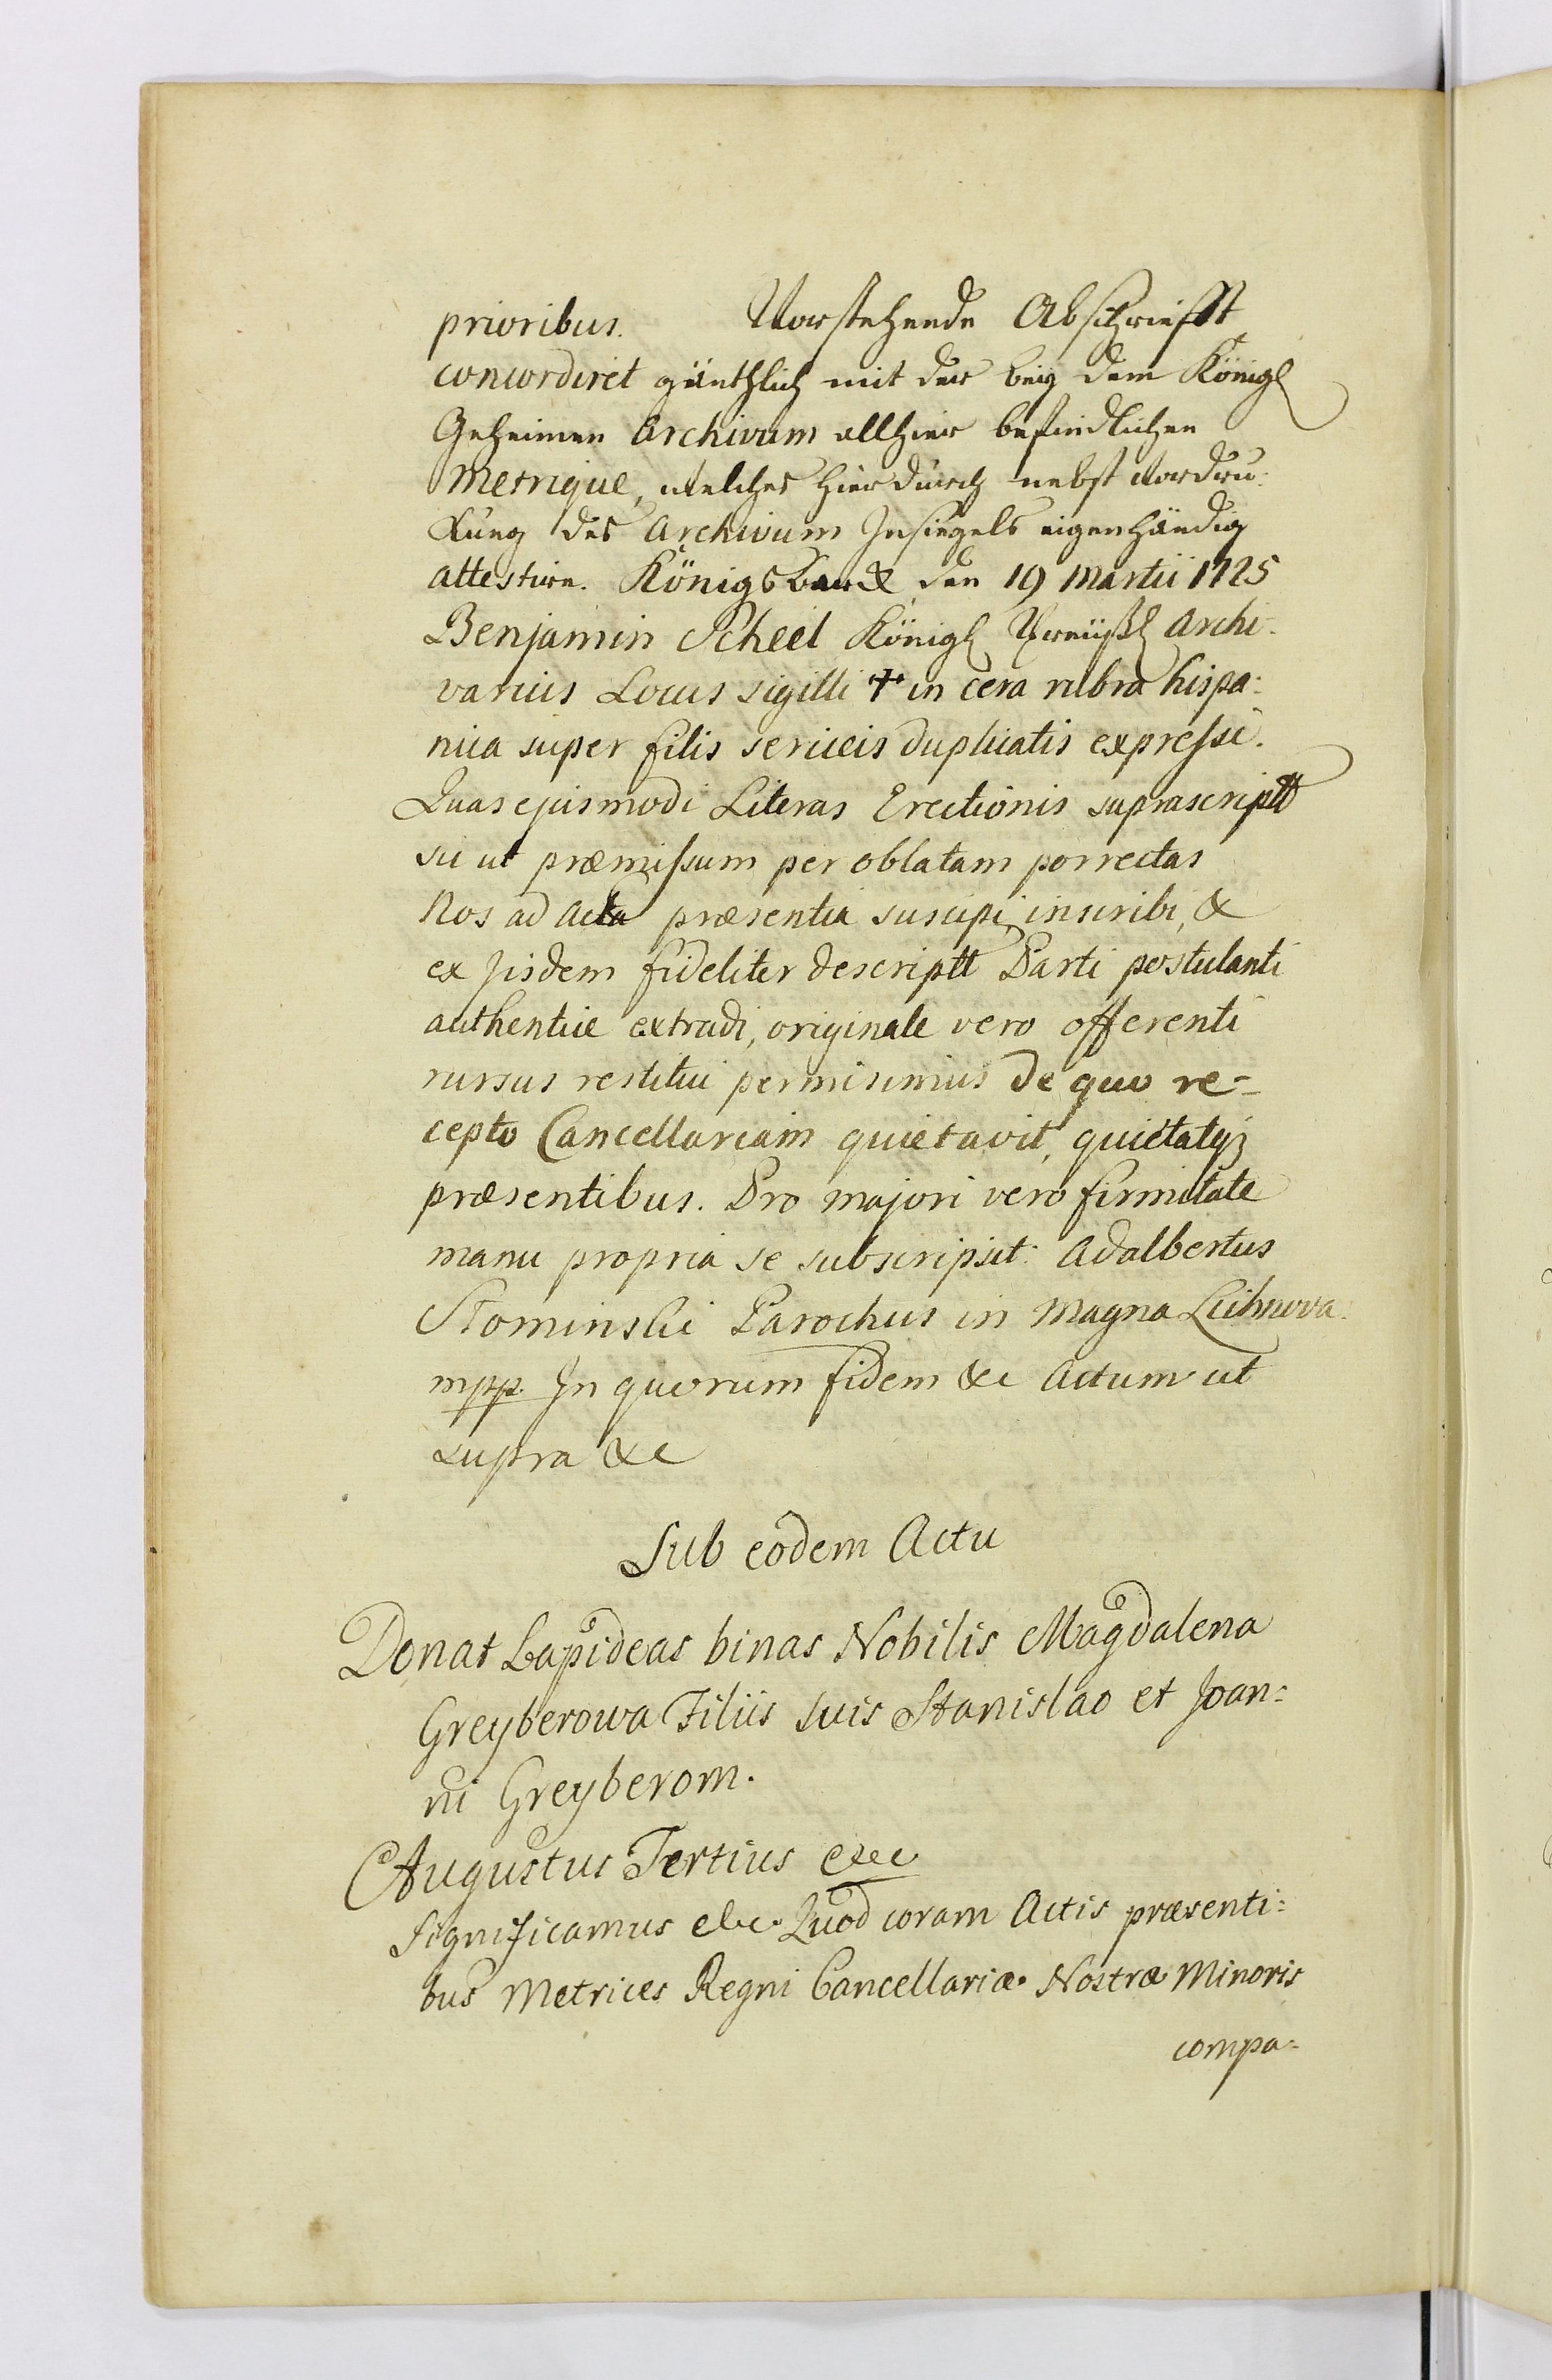 prioribus. Vorstehende Abschrifft
concordiret gäntzlich mit der bey dem Königl
Geheimen Archivum allhier befindlichen
Metrique, welches hierdurch nebst vordru:
kung des Archivum Insiegels eigenhändig
attestire. Königsberg den 19 Martii 1725
Benjamin Scheel Königl Preüßl Archi:
varius Locus sigilli ☩ in cera rubra hispa:
nica super filis sericeis duplicatis expressi.
Quas ejusmodi Literas Erectionis suprascriptt
sic ut præmissum per oblatam porrectas
Nos ad Acta præsentia suscipi, inscribi, &
ex Jisdem fideliter descriptt Parti postulanti
authentice extradi, originale vero offerenti
rursus restitui permisimus de quo re=
cepto Cancellariam quietavit, quietatq;
præsentibus. Pro majori vero firmitate
manu propria se subscripsit: Adalbertus
Słominski Parochus in Magna Lichnova.
mpp. In quorum fidem &c Actum ut
supra &c
Sub eodem Actu
Donat Lapideas binas Nobilis Magdalena
Greyberowa Filiis suis Stanislao et Joan:
ni Greyberom.
Augustus Tertius etc
Significamus etc. Quod coram Actis præsenti:
bus Metrices Regni Cancellariæ Nostræ Minoris
compa=